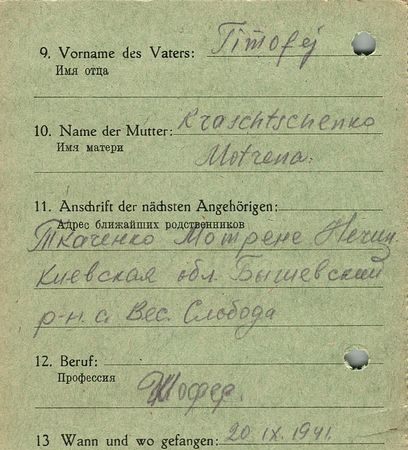 9. Vorname des Vaters: Timofej
Имя отца
10. Name der Mutter: Kraschtschenko
Имя матери
Motrena.
11. Anschrift der nächsten Angehörigen:
Адрес ближайших родственников
Ткаченко Мотрене Нечип.
Киевская обл. Бышевский
р-н. с. Вес. Слобода
12. Beruf:
Профессия
Шофер.
13 Wann und wo gefangen: 20 IX. 1941.